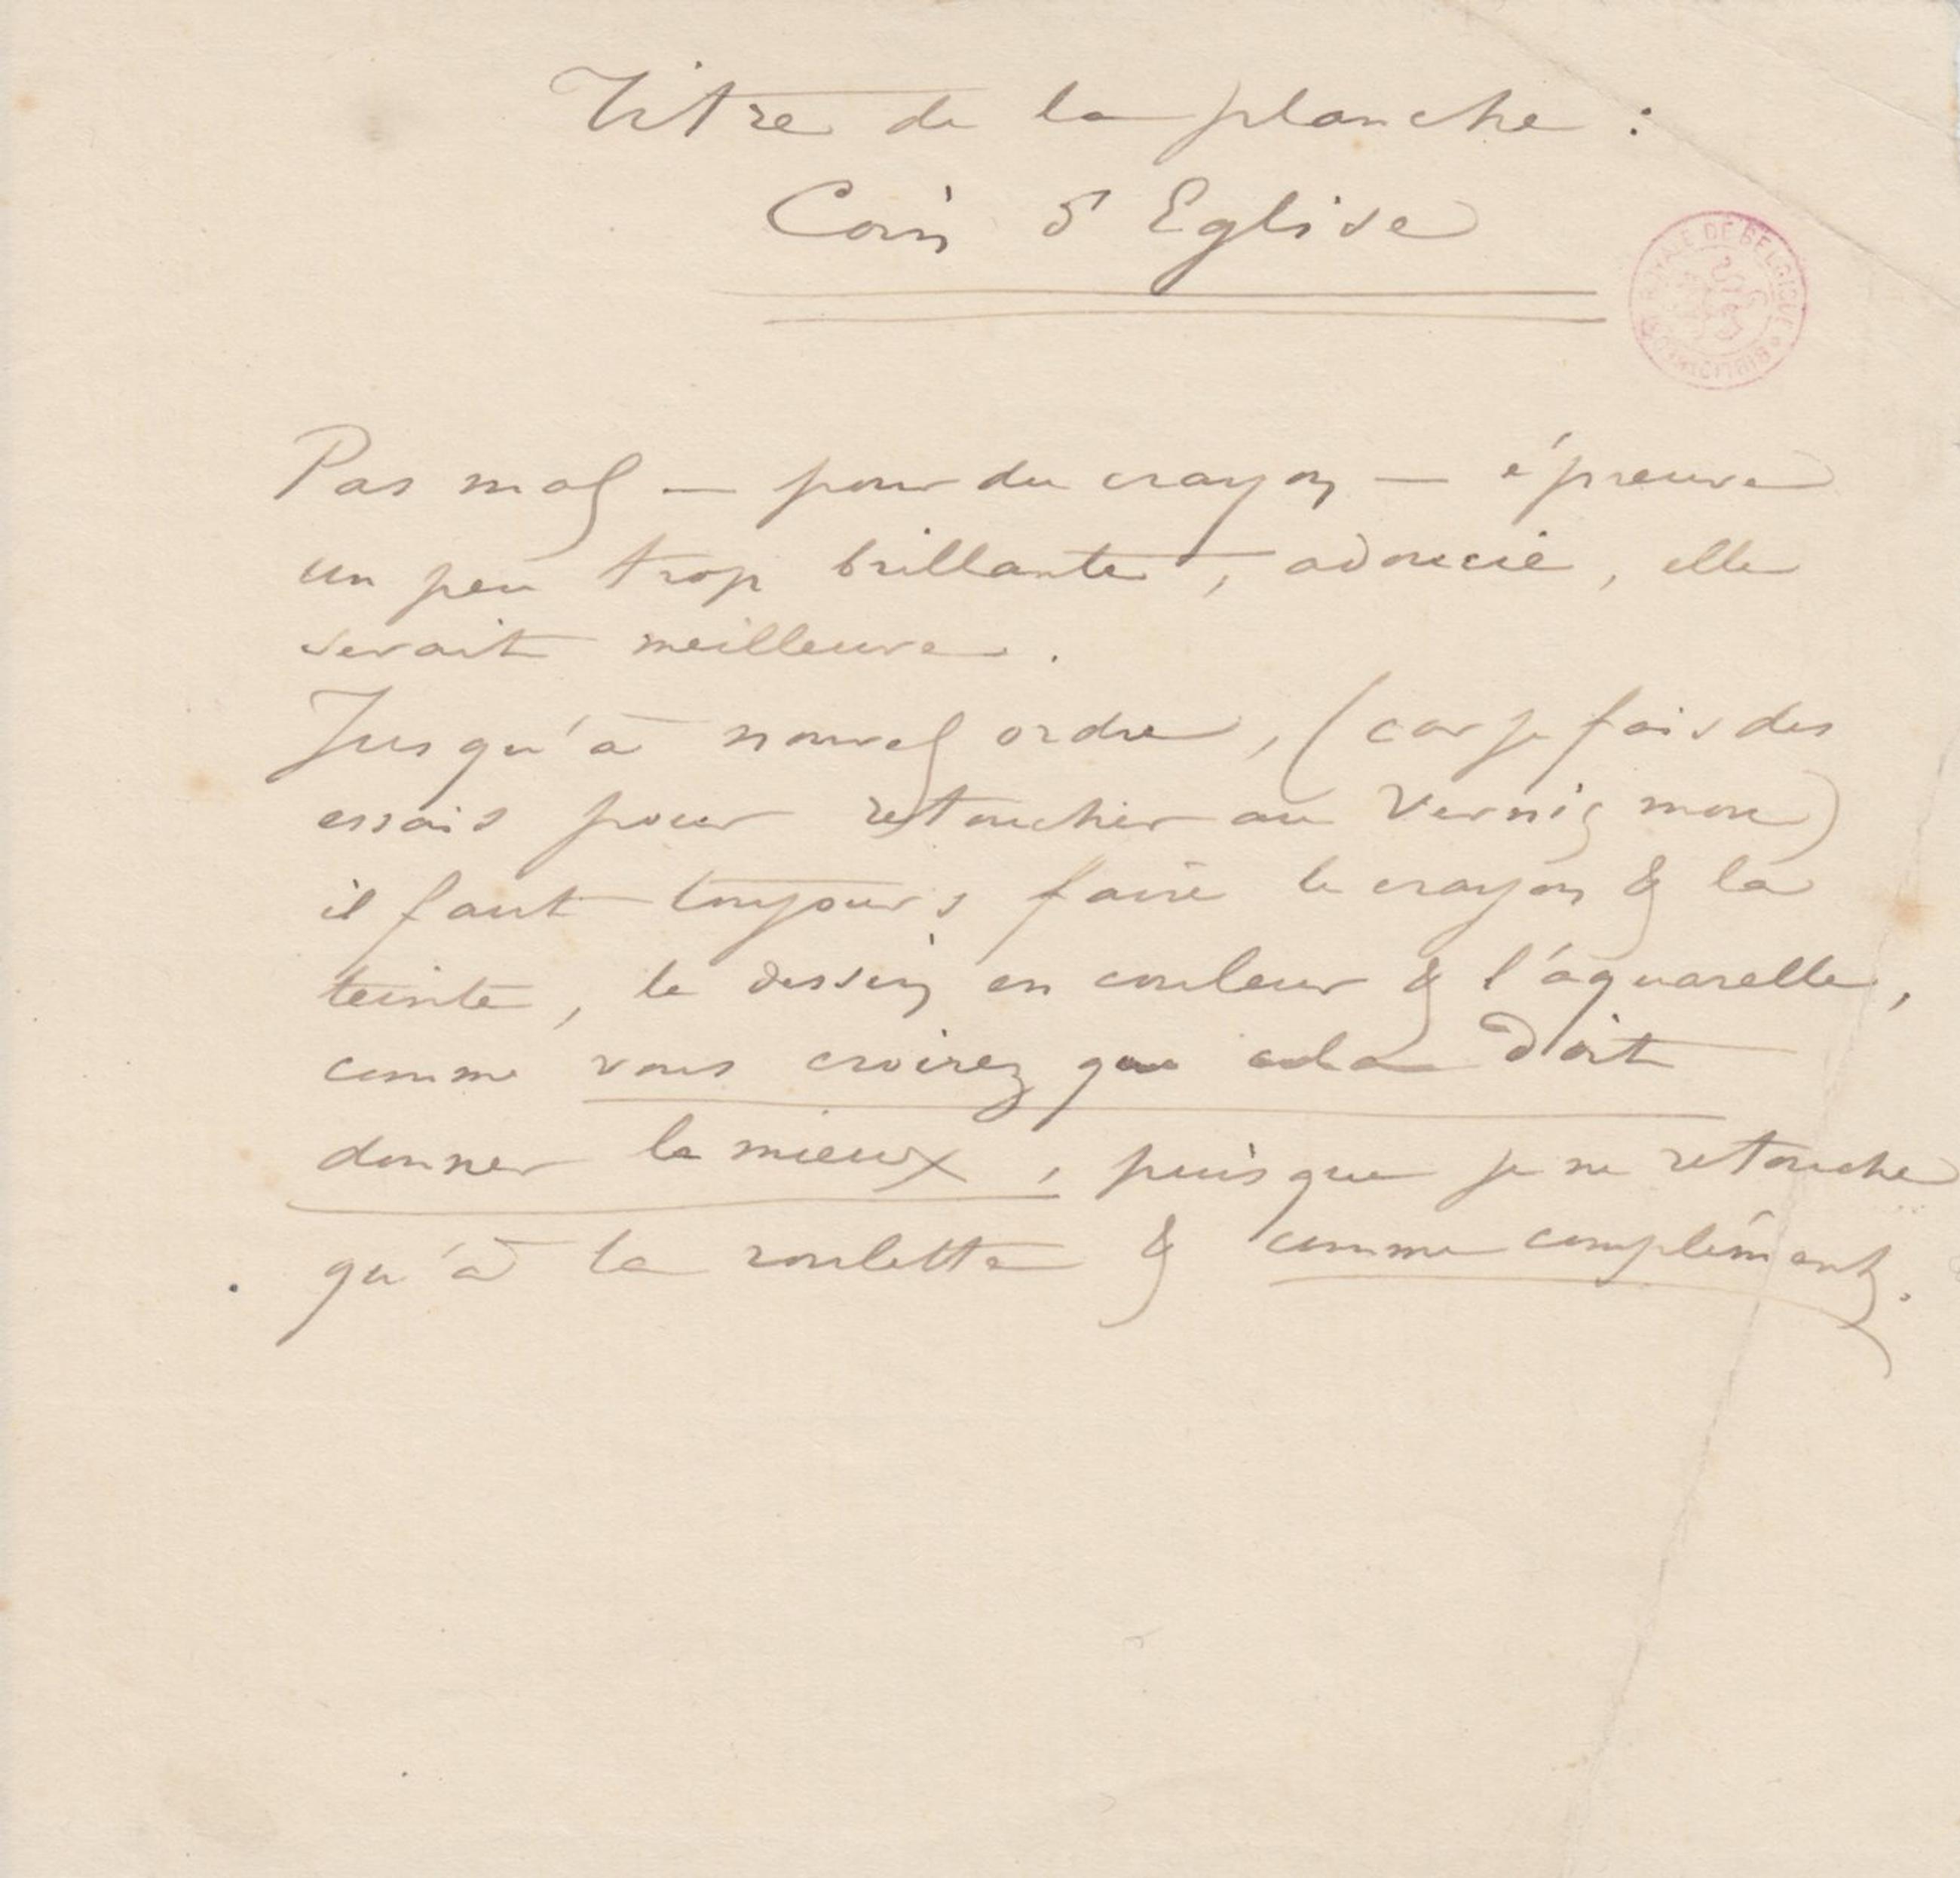 Titre de la planche :
Coin d'Eglise
Pas mal — pour du crayon — épreuve
un peu trop brillante, adoucie, elle
serait meilleure.
Jusqu'à nouvel ordre, (car je fais des
essais pour retoucher au Vernis mou)
il faut toujours faire le crayon & la
teinte, le dessin en couleur & l'aquarelle,
comme vous croirez que cela doit
donner le mieux, puisque je ne retouche
qu'à la roulette & comme complément.
ROYALE DE BELGIQUE * BIBLIOTHEQUE